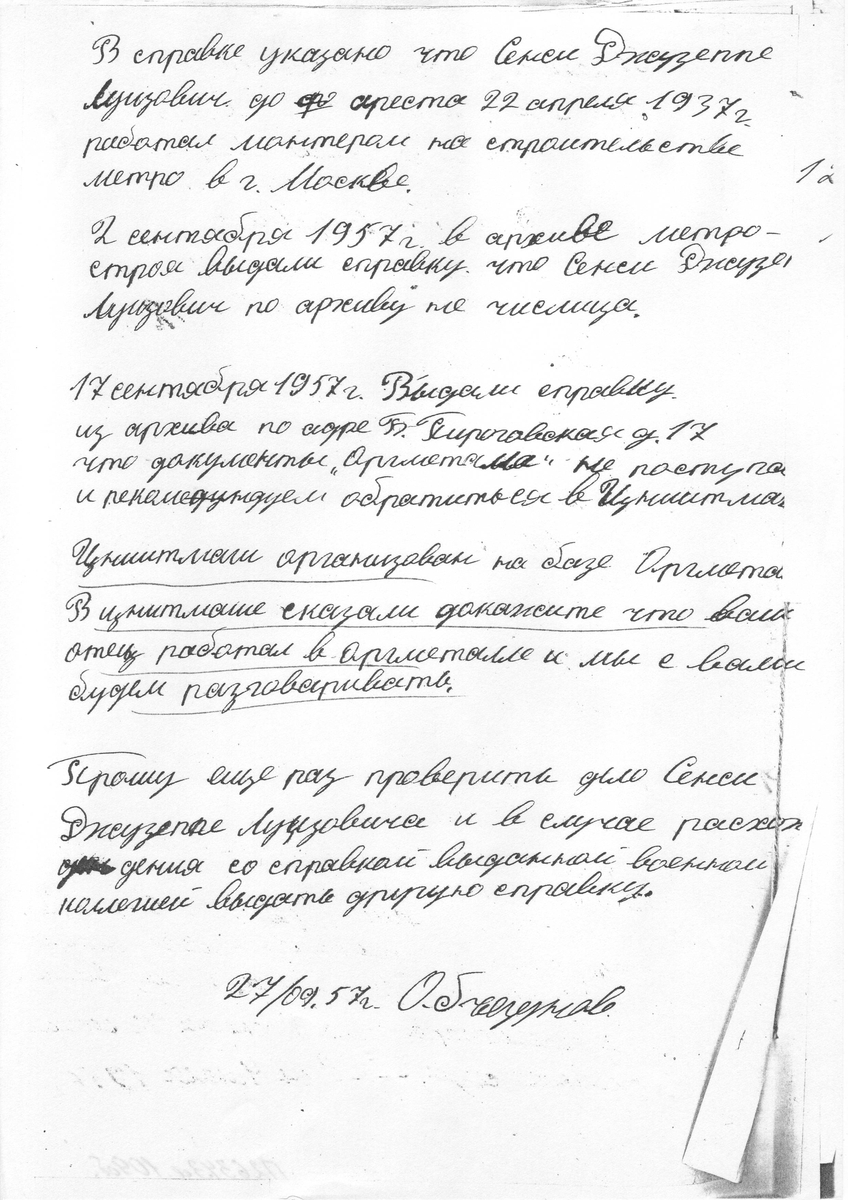 В справке указано что Сенси Джузеппе
Луизович до ареста 22 апреля 1937 г.
работал монтером на строительстве
метро в г. Москве.
12
2 сентября 1957 г. в архиве метро-
строя выдали справку что Сенси Джузе
Луизович по архиву не числица.
17 сентября 1957 г. Выдали справку
из архива по адре Б. Пироговская д. 17
что документы „Оргметалла" не поступа
и рекомендуем обратиться в Цниитма
Цниитмаш организован на базе Оргмета
В цниитмаше сказали докажите что ваш
отец работал в оргметалле и мы с вами
будем разговаривать.
Прошу еще раз проверить дело Сенси
Джузеппе Луизовича и в случае расхож
дения со справкой выданной военной
коллегией выдать другую справку.
27/09.57 г.